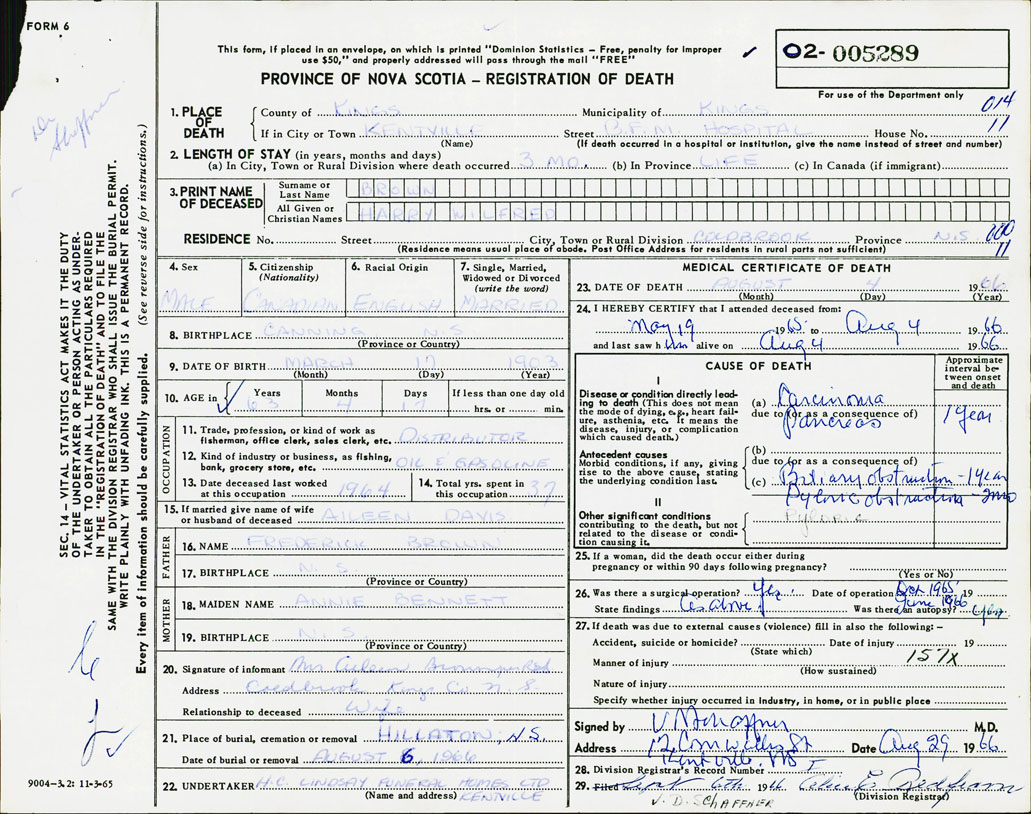 FORM 6
This form, if placed in an envelope, on which is printed "Dominion Statistics – Free, penalty for improper
use $50," and properly addressed will pass through the mail "FREE"
PROVINCE OF NOVA SCOTIA – REGISTRATION OF DEATH
02-005289
For use of the Department only
014
11
1. PLACE OF DEATH
County of KINGS Municipality of KINGS
If in City or Town KENTVILLE Street B.F.M. HOSPITAL House No.
(Name) (If death occurred in a hospital or institution, give the name instead of street and number)
2. LENGTH OF STAY (in years, months and days)
(a) In City, Town or Rural Division where death occurred 3 MO. (b) In Province LIFE (c) In Canada (if immigrant)
3. PRINT NAME OF DECEASED
Surname or Last Name BROWN
All Given or Christian Names HARRY WILFRED
RESIDENCE No. Street City, Town or Rural Division COLDBROOK Province N.S.
(Residence means usual place of abode. Post Office Address for residents in rural parts not sufficient)
000
11
4. Sex MALE
5. Citizenship (Nationality) CANADIAN
6. Racial Origin ENGLISH
7. Single, Married, Widowed or Divorced (write the word) MARRIED
8. BIRTHPLACE CANNING N.S.
(Province or Country)
9. DATE OF BIRTH MARCH 17 1903
(Month) (Day) (Year)
10. AGE in Years Months Days If less than one day old
63 4 17 hrs. or min.
OCCUPATION
11. Trade, profession, or kind of work as
fisherman, office clerk, sales clerk, etc. DISTRIBUTOR
12. Kind of industry or business, as fishing,
bank, grocery store, etc. OIL & GASOLINE
13. Date deceased last worked
at this occupation 1964
14. Total yrs. spent in
this occupation 37
15. If married give name of wife
or husband of deceased AILEEN DAVIS
FATHER
16. NAME FREDERICK BROWN
17. BIRTHPLACE N.S.
(Province or Country)
MOTHER
18. MAIDEN NAME ANNIE BENNETT
19. BIRTHPLACE N.S.
(Province or Country)
20. Signature of informant Mrs Aileen Brown
Address Coldbrook Kings Co. N.S.
Relationship to deceased Wife
21. Place of burial, cremation or removal HILLATON, N.S.
Date of burial or removal AUGUST 6, 1966
22. UNDERTAKER H.C. LINDSAY FUNERAL HOMES LTD
(Name and address) KENTVILLE
MEDICAL CERTIFICATE OF DEATH
23. DATE OF DEATH AUGUST 4 1966
(Month) (Day) (Year)
24. I HEREBY CERTIFY that I attended deceased from:
May 19 1965 to Aug 4 1966
and last saw him alive on Aug 4 1966
CAUSE OF DEATH
Approximate interval between onset and death
I
Disease or condition directly leading
to death (This does not mean
the mode of dying, e.g., heart failure,
asthenia, etc. It means the
disease, injury, or complication
which caused death.)
(a) Carcinoma
due to (or as a consequence of)
Pancreas 1 year
Antecedent causes
Morbid conditions, if any, giving
rise to the above cause, stating
the underlying condition last.
(b)
due to (or as a consequence of)
(c) Biliary obstruction – 1 year
Pyloric obstruction – 2 mo
II
Other significant conditions
contributing to the death, but not
related to the disease or condition
causing it.
Pyloric
25. If a woman, did the death occur either during
pregnancy or within 90 days following pregnancy?
(Yes or No)
26. Was there a surgical operation? Yes. Date of operation Oct 1965
June 1966
State findings as above Was there an autopsy? yes
27. If death was due to external causes (violence) fill in also the following: –
Accident, suicide or homicide? Date of injury 19
(State which)
Manner of injury 157X
(How sustained)
Nature of injury
Specify whether injury occurred in industry, in home, or in public place
Signed by V D Schaffner M.D.
Address 12 Cornwallis St Date Aug 29 1966
Kentville, NS
28. Division Registrar's Record Number
29. Filed Sept 6th 1966
(Division Registrar)
V. D. SCHAFFNER
Dr Schaffner
SEC. 14 – VITAL STATISTICS ACT MAKES IT THE DUTY
OF THE UNDERTAKER OR PERSON ACTING AS UNDER-
TAKER TO OBTAIN ALL THE PARTICULARS REQUIRED
IN THE "REGISTRATION OF DEATH" AND TO FILE THE
SAME WITH THE DIVISION REGISTRAR WHO SHALL ISSUE THE BURIAL PERMIT.
WRITE PLAINLY WITH UNFADING INK. THIS IS A PERMANENT RECORD.
Every item of information should be carefully supplied. (See reverse side for instructions.)
9004–3.2: 11-3-65